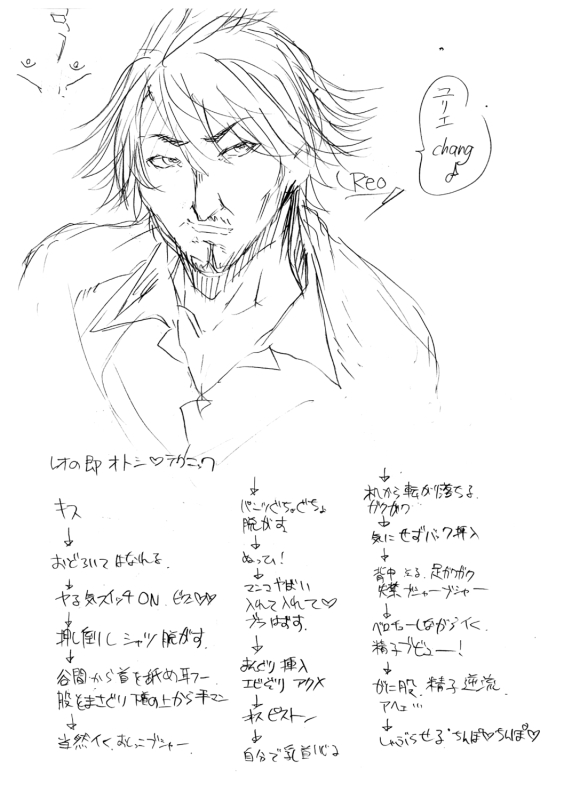 ユリエ
chang
Reo
レオの即オトシ♡テクニック
キス
↓
おどろいてはなれる
↓
ヤる気スイッチON ビュ♡♡
↓
押し倒しシャツ脱がす
↓
谷間から首を舐め耳フー
股をまさぐり 下着の上から手マン
↓
当然イく、おしっこブシャー
↓
パンツぐちょぐちょ
脱がす
↓
ぬってぃ!
↓
マンコやばい
入れて入れて♡
ブラはずす。
↓
挿入
エビぞり アクメ
↓
キスピストン
↓
自分で乳首いじる
↓
から転がり落ちる
ガクガク
↓
気にせずバック挿入
↓
背中 反る、足ガクガク
失禁ブシャーブシャー
↓
ベロチューしながらイく、
精子ブビュー!
↓
がに股、精子逆流
アヘェ…
↓
しゃぶらせる・ちんぽ♡ちんぽ♡